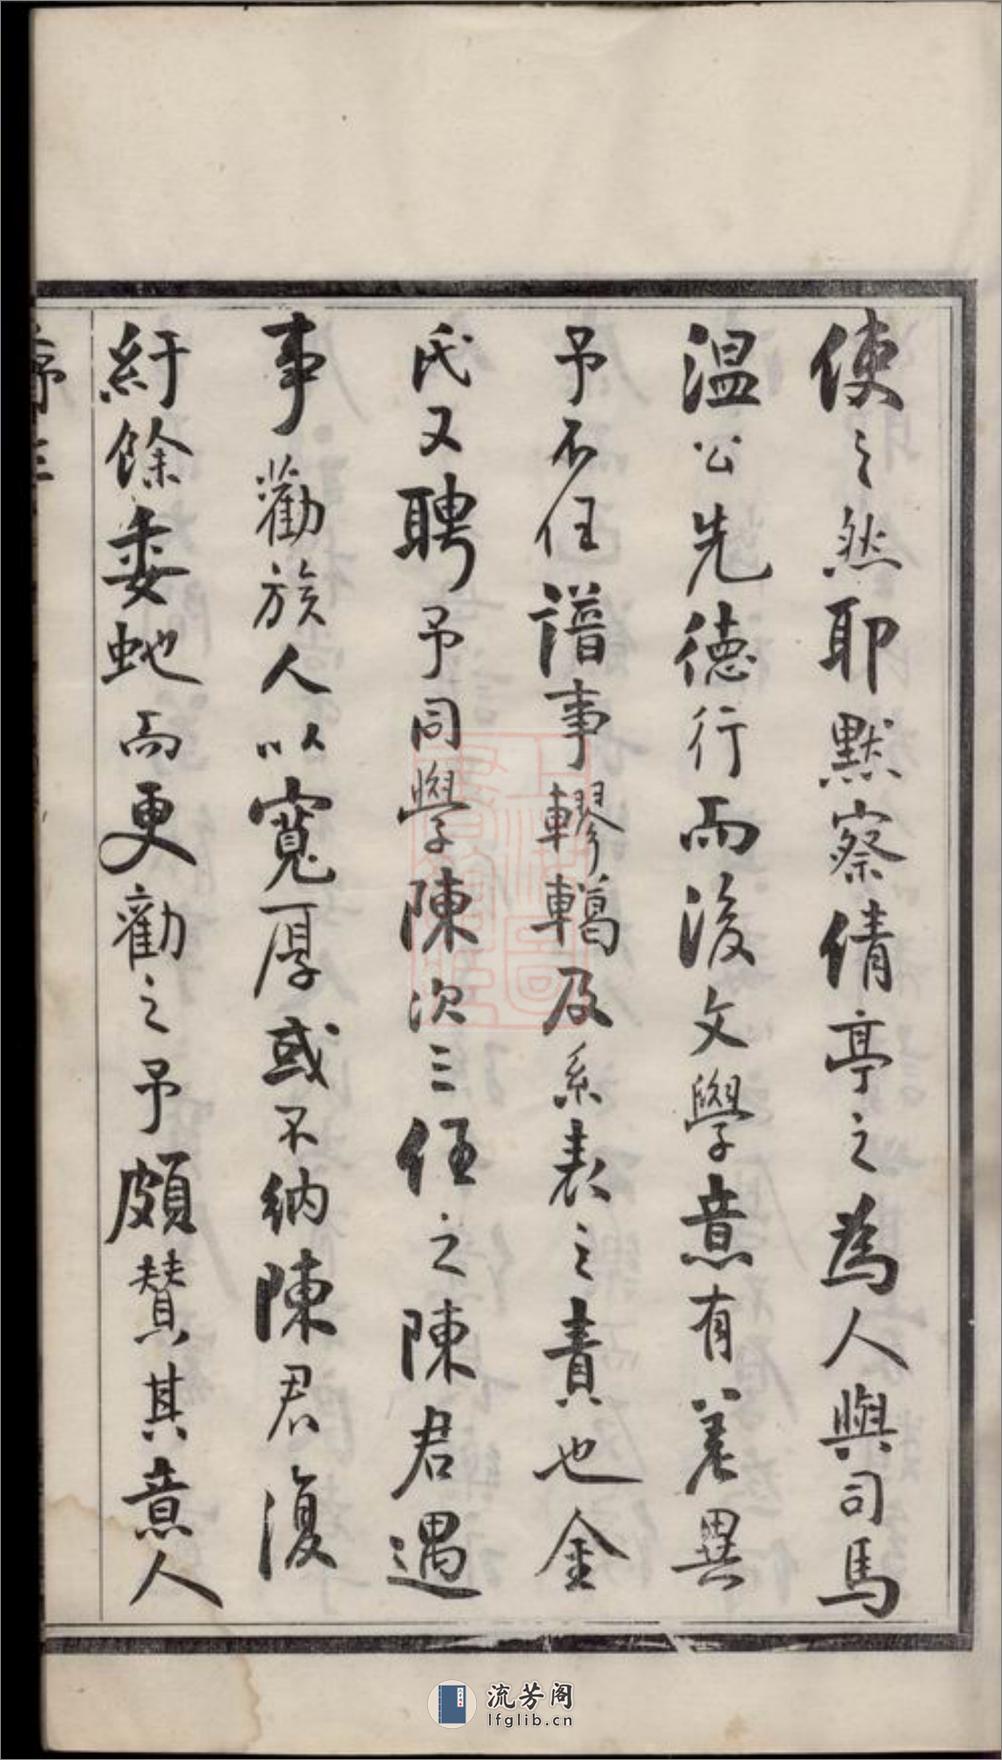 使之然耶默察倩亭之為人與司馬
温公先德行而後文學意有差異
予不任譜事轇轕及系表之責也金
氏又聘予同學陳次三任之陳君遇
事勸族人以寬厚或不納陳君復
紆餘委蛇而更勸之予頗贊其意人
序三
流芳阁
lfglib.cn